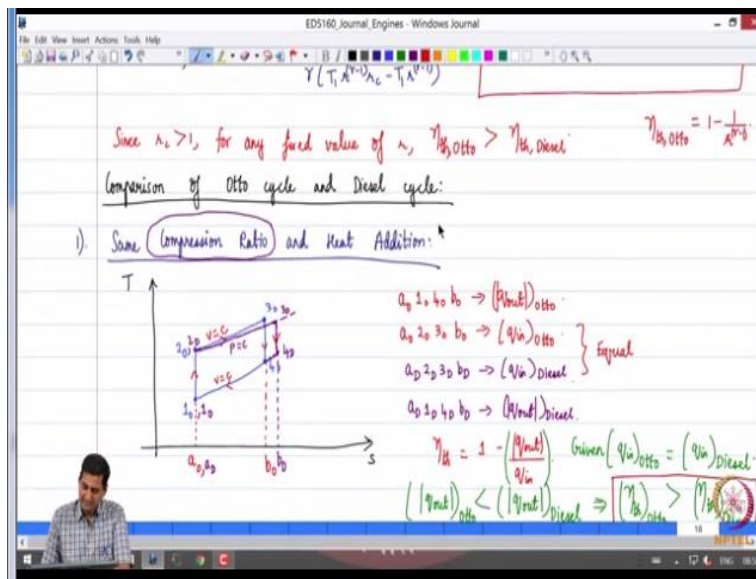 ED5160_Journal_Engines - Windows Journal
File Edit View Insert Actions Tools Help
γ(T₁ r^(γ-1) r_c - T₁ r^(γ-1))
Since r_c >1, for any fixed value of r, η_th,Otto > η_th,Diesel.
η_th,Otto = 1 - 1/r^(γ-1).
Comparison of Otto cycle and Diesel cycle:
1). Same Compression Ratio and Heat Addition:
T
3₀ 3_D
2₀, 2_D v=c
p=c
4₀ 4_D
v=c
1₀, 1_D
s
a₀, a_D b₀ b_D
a₀ 1₀ 4₀ b₀ → (|q_out|)_Otto.
a₀ 2₀ 3₀ b₀ → (q_in)_Otto
Equal
a_D 2_D 3_D b_D → (q_in)_Diesel
a_D 1_D 4_D b_D → (|q_out|)_Diesel.
η_th = 1 - (|q_out|/q_in). Given (q_in)_Otto = (q_in)_Diesel.
(|q_out|)_Otto < (|q_out|)_Diesel ⇒ (η_th)_Otto > (η_th)
18
NPTEL
ENG